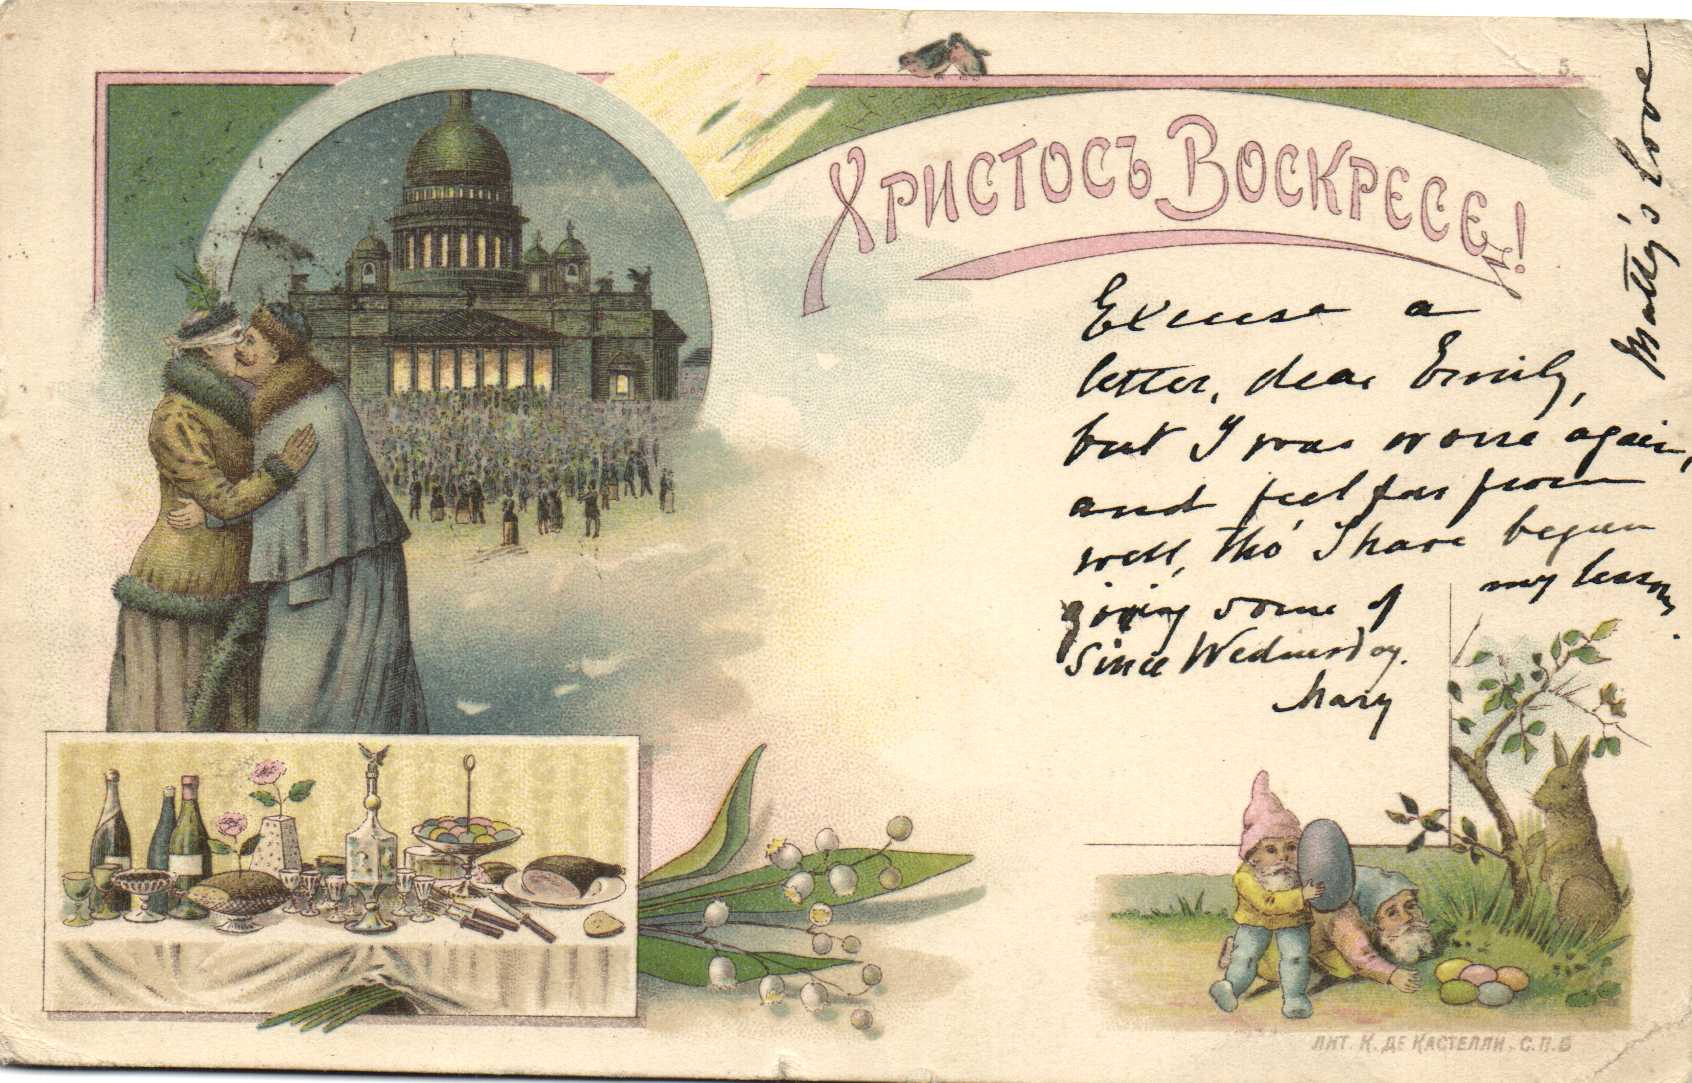 5
Христосъ Воскресе!
Excuse a
letter, dear Emily,
but I was worse again,
and feel far from
well, tho' I have begun
giving some of my lessons
since Wednesday.
Mary
Matty's love
ЛИТ. К. ДЕ КАСТЕЛЛИ. С.П.Б